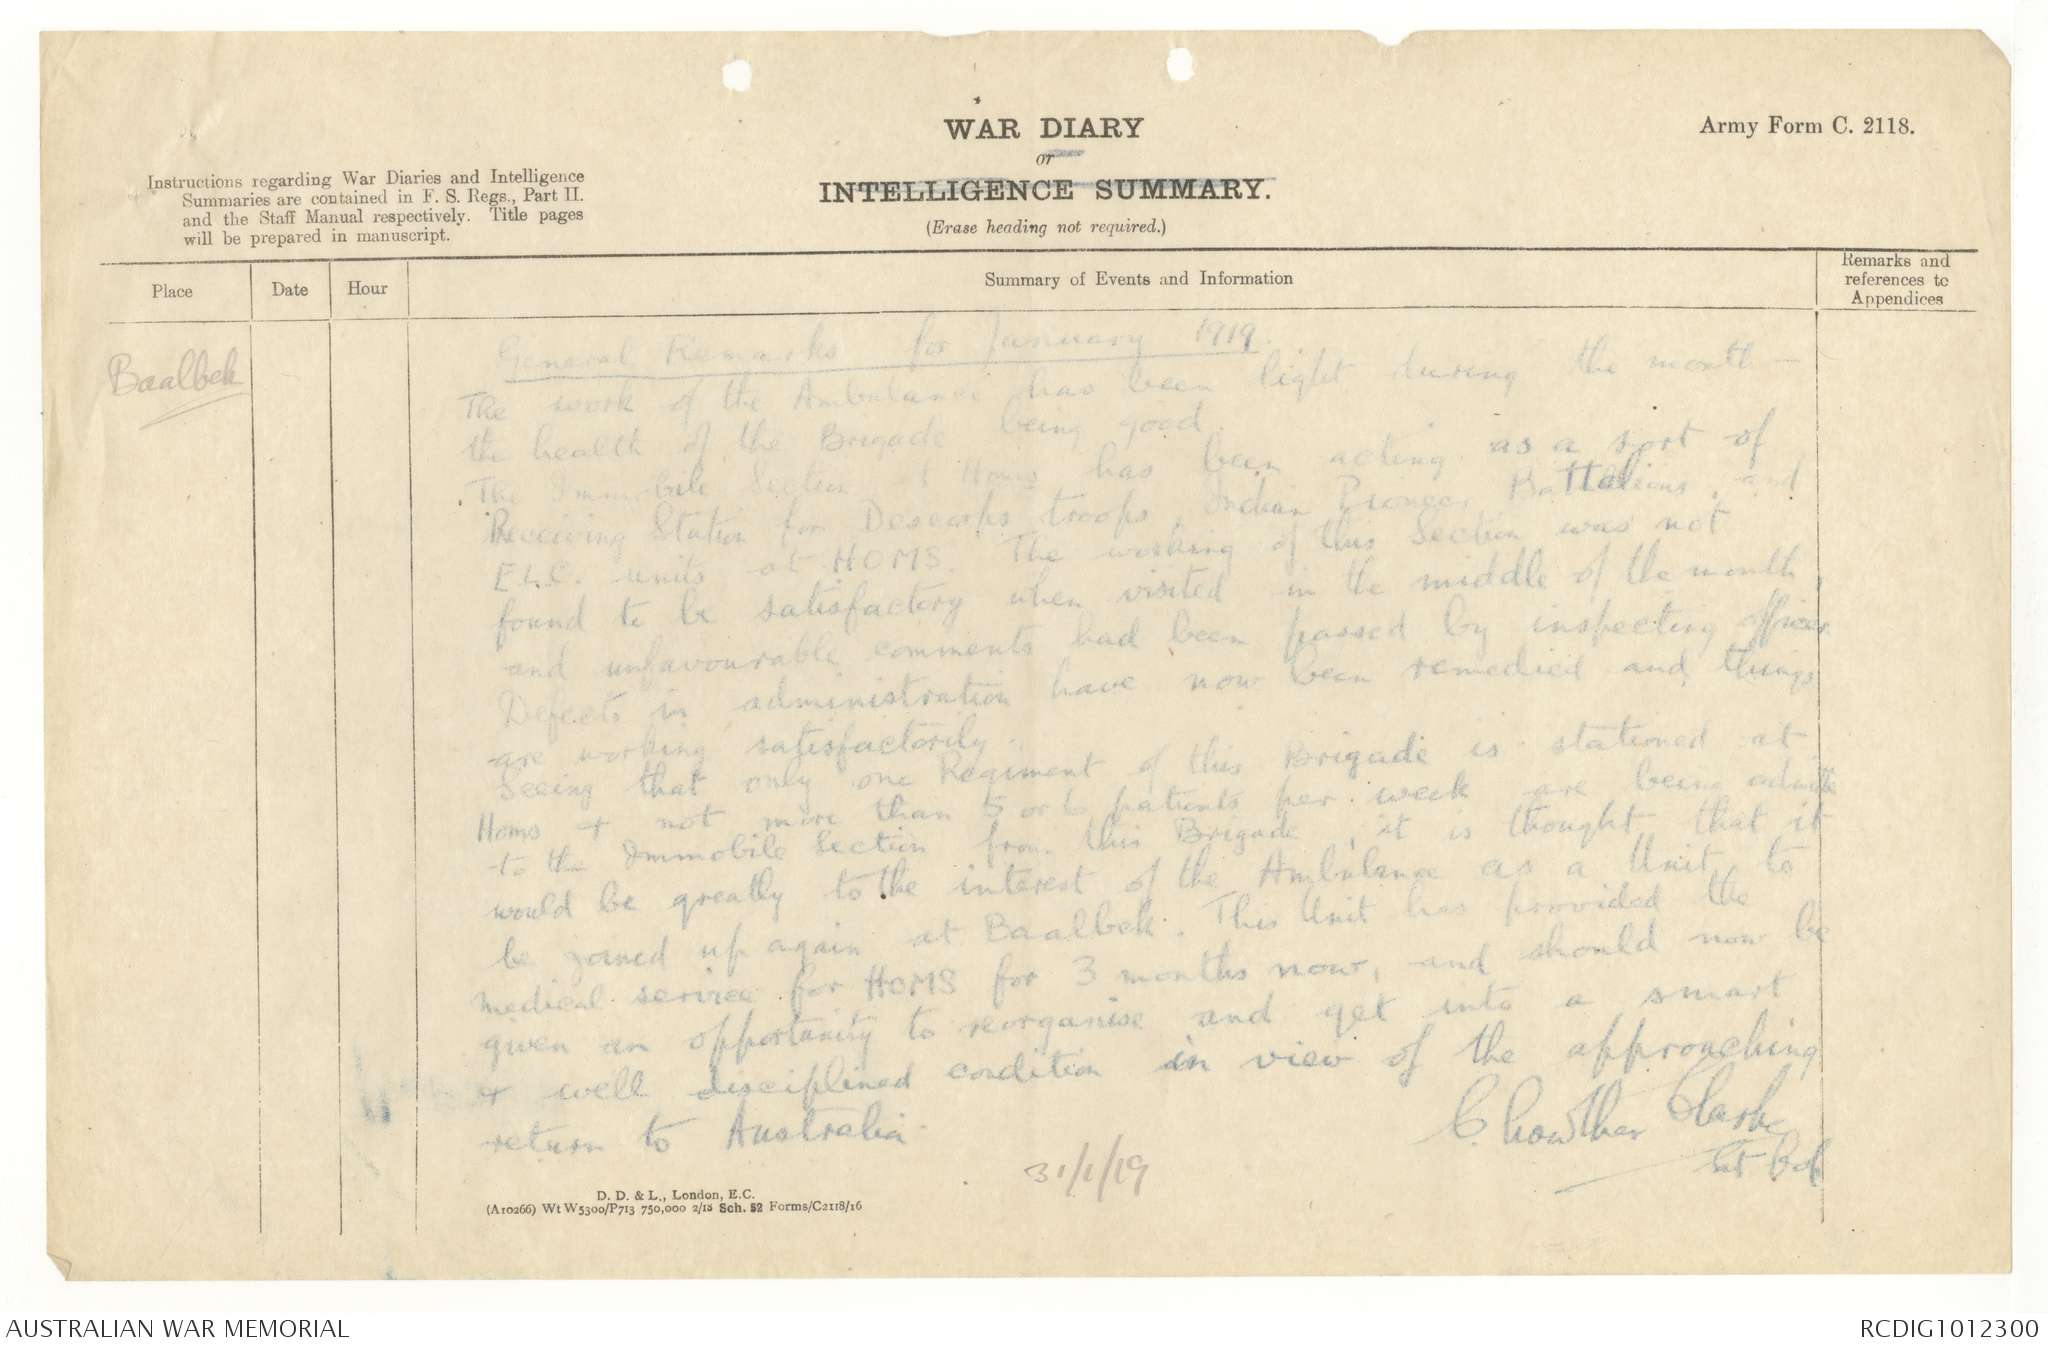 WAR DIARY
or
INTELLIGENCE SUMMARY.
(Erase heading not required.)
Army Form C. 2118.
Instructions regarding War Diaries and Intelligence
Summaries are contained in F. S. Regs., Part II.
and the Staff Manual respectively. Title pages
will be prepared in manuscript.
Place
Date
Hour
Summary of Events and Information
Remarks and
references to
Appendices
Baalbek
General Remarks for January 1919.
The work of the Ambulance has been light during the month —
the health of the Brigade being good.
The Immobile Section at Homs has been acting as a sort of
Receiving Station for Descorps troops, Indian Pioneer Battalions, and
E.L.C. units at HOMS. The working of this Section was not
found to be satisfactory when visited in the middle of the month,
and unfavourable comments had been passed by inspecting officers
Defects in administration have now been remedied and things
are working satisfactorily.
Seeing that only one Regiment of this Brigade is stationed at
Homs + not more than 5 or 6 patients per week are being admitted
to the Immobile Section from this Brigade, it is thought that it
would be greatly to the interest of the Ambulance as a Unit, to
be joined up again at Baalbek. This Unit has provided the
medical service for HOMS for 3 months now, and should now be
given an opportunity to reorganise and get into a smart
+ well disciplined condition in view of the approaching
return to Australia.
C. Lowther Clarke
Lt Col
31/1/19
D. D. & L., London, E.C.
(A10266) Wt W5300/P713 750,000 2/18 Sch. 52 Forms/C2118/16
AUSTRALIAN WAR MEMORIAL
RCDIG1012300